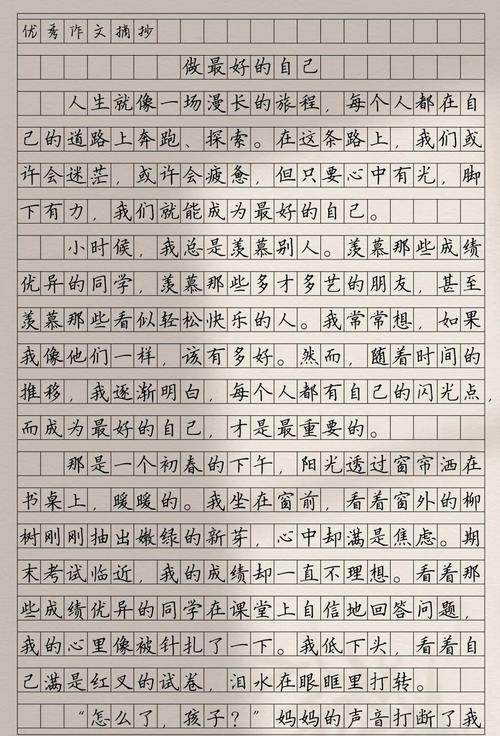 优秀作文摘抄
做最好的自己
人生就像一场漫长的旅程，每个人都在自
己的道路上奔跑、探索。在这条路上，我们或
许会迷茫，或许会疲惫，但只要心中有光，脚
下有力，我们就能成为最好的自己。
小时候，我总是羡慕别人。羡慕那些成绩
优异的同学，羡慕那些多才多艺的朋友，甚至
羡慕那些看似轻松快乐的人。我常常想，如果
我像他们一样，该有多好。然而，随着时间的
推移，我逐渐明白，每个人都有自己的闪光点，
而成为最好的自己，才是最重要的。
那是一个初春的下午，阳光透过窗帘洒在
书桌上，暖暖的。我坐在窗前，看着窗外的柳
树刚刚抽出嫩绿的新芽，心中却满是焦虑。期
末考试临近，我的成绩却一直不理想。看着那
些成绩优异的同学在课堂上自信地回答问题，
我的心里像被针扎了一下。我低下头，看着自
己满是红叉的试卷，泪水在眼眶里打转。
“怎么了，孩子？”妈妈的声音打断了我